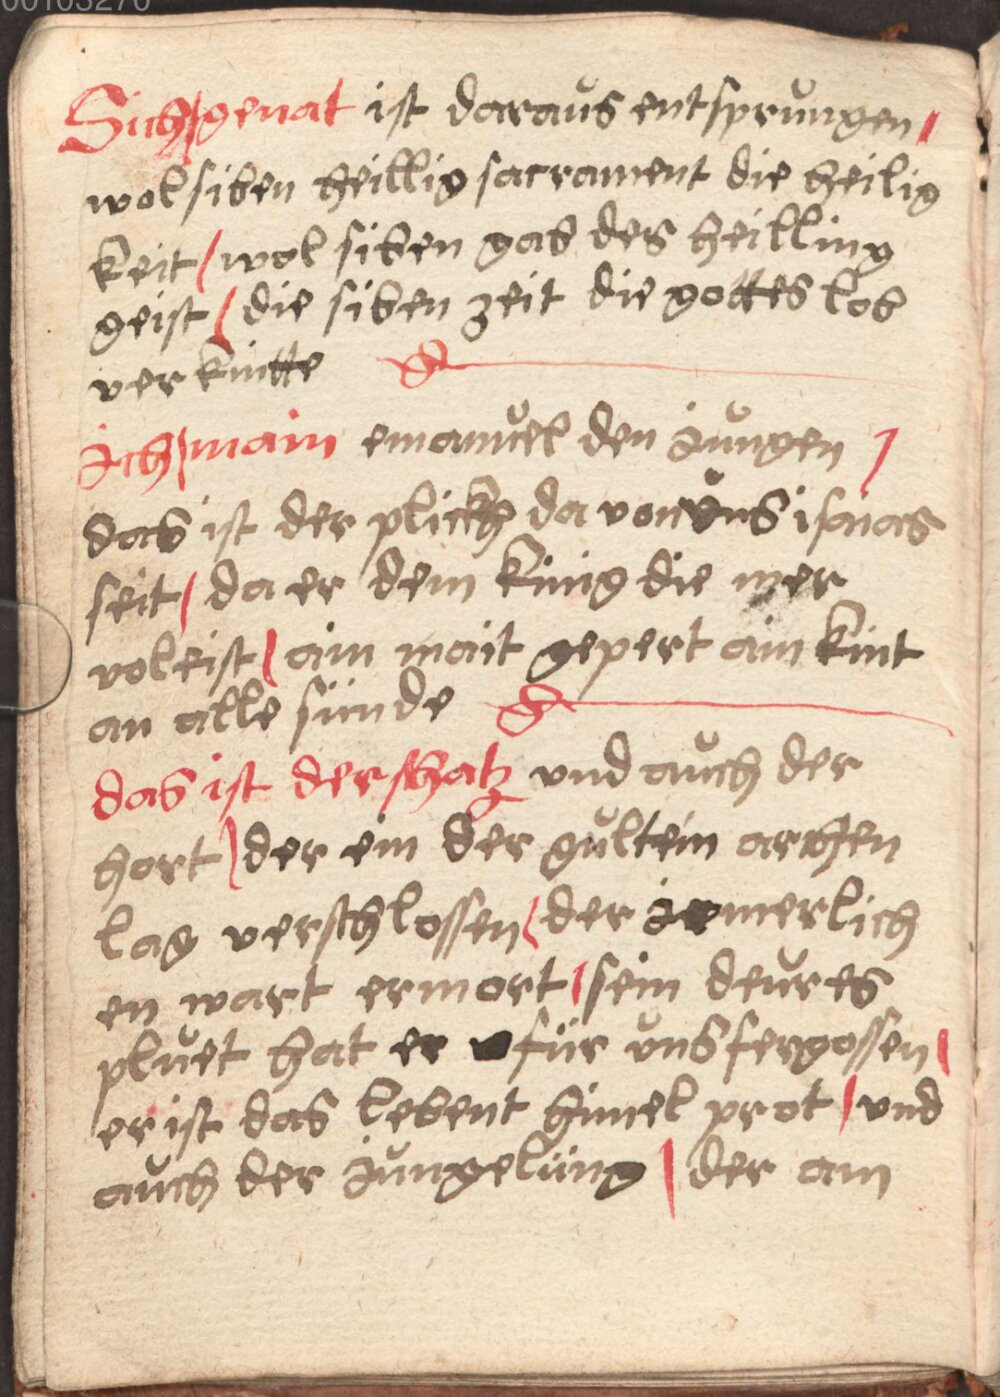 00103270
Sich genat ist daraus entsprungen /
wol siben heillig sacrament die heilig
keit / wol siben gab des heilling
geist / die siben zeit die gottes lob
ver kintte
Ich main emanuel den jungen /
das ist der plickh da von uns isaias
seit / da er dem king die mer
vol eist / ain mait gepert ain kint
an alle sünde
das ist der schatz vnd auch der
hort / der ein der gultein archen
lag verschlossen / der jemerlich
en wart ermort / sein deures
pluet hat er für vns fergossen /
er ist das lebent himel prot / vnd
auch der jungelüng / der am